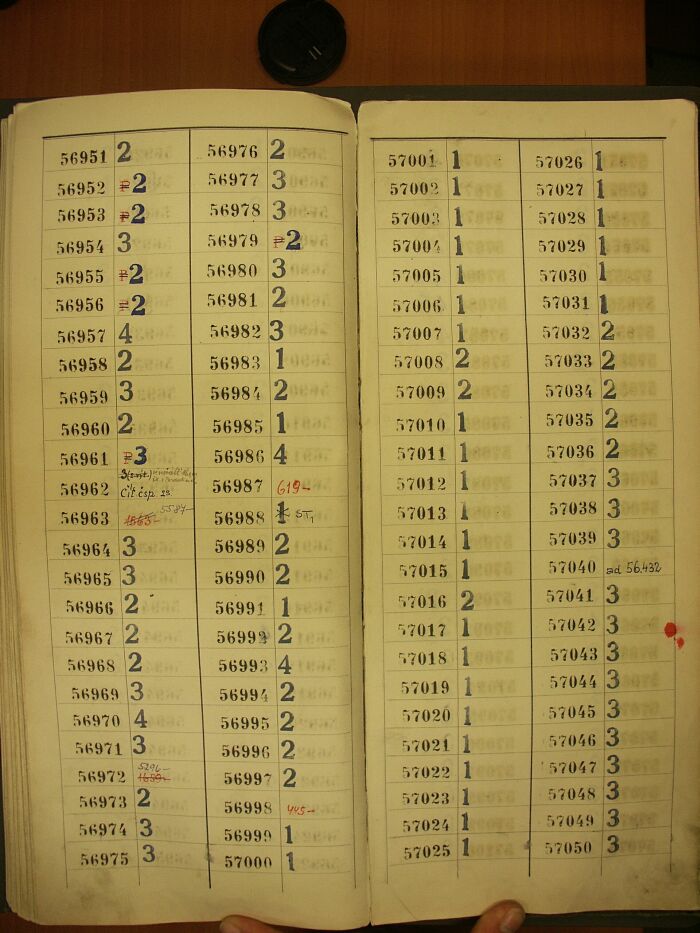 56951 2
56952 2
56953 2
56954 3
56955 2
56956 2
56957 4
56958 2
56959 3
56960 2
56961 3
56962 čit čsp. 28
56963 5587-
56964 3
56965 3
56966 2
56967 2
56968 2
56969 3
56970 4
56971 3
56972 5296- 1659-
56973 2
56974 3
56975 3
56976 2
56977 3
56978 3
56979 2
56980 3
56981 2
56982 3
56983 1
56984 2
56985 1
56986 4
56987 619-
56988 1 ST1
56989 2
56990 2
56991 1
56992 2
56993 4
56994 2
56995 2
56996 2
56997 2
56998 445-
56999 1
57000 1
57001 1
57002 1
57003 1
57004 1
57005 1
57006 1
57007 1
57008 2
57009 2
57010 1
57011 1
57012 1
57013 1
57014 1
57015 1
57016 2
57017 1
57018 1
57019 1
57020 1
57021 1
57022 1
57023 1
57024 1
57025 1
57026 1
57027 1
57028 1
57029 1
57030 1
57031 1
57032 2
57033 2
57034 2
57035 2
57036 2
57037 3
57038 3
57039 3
57040 ad 56.432
57041 3
57042 3
57043 3
57044 3
57045 3
57046 3
57047 3
57048 3
57049 3
57050 3